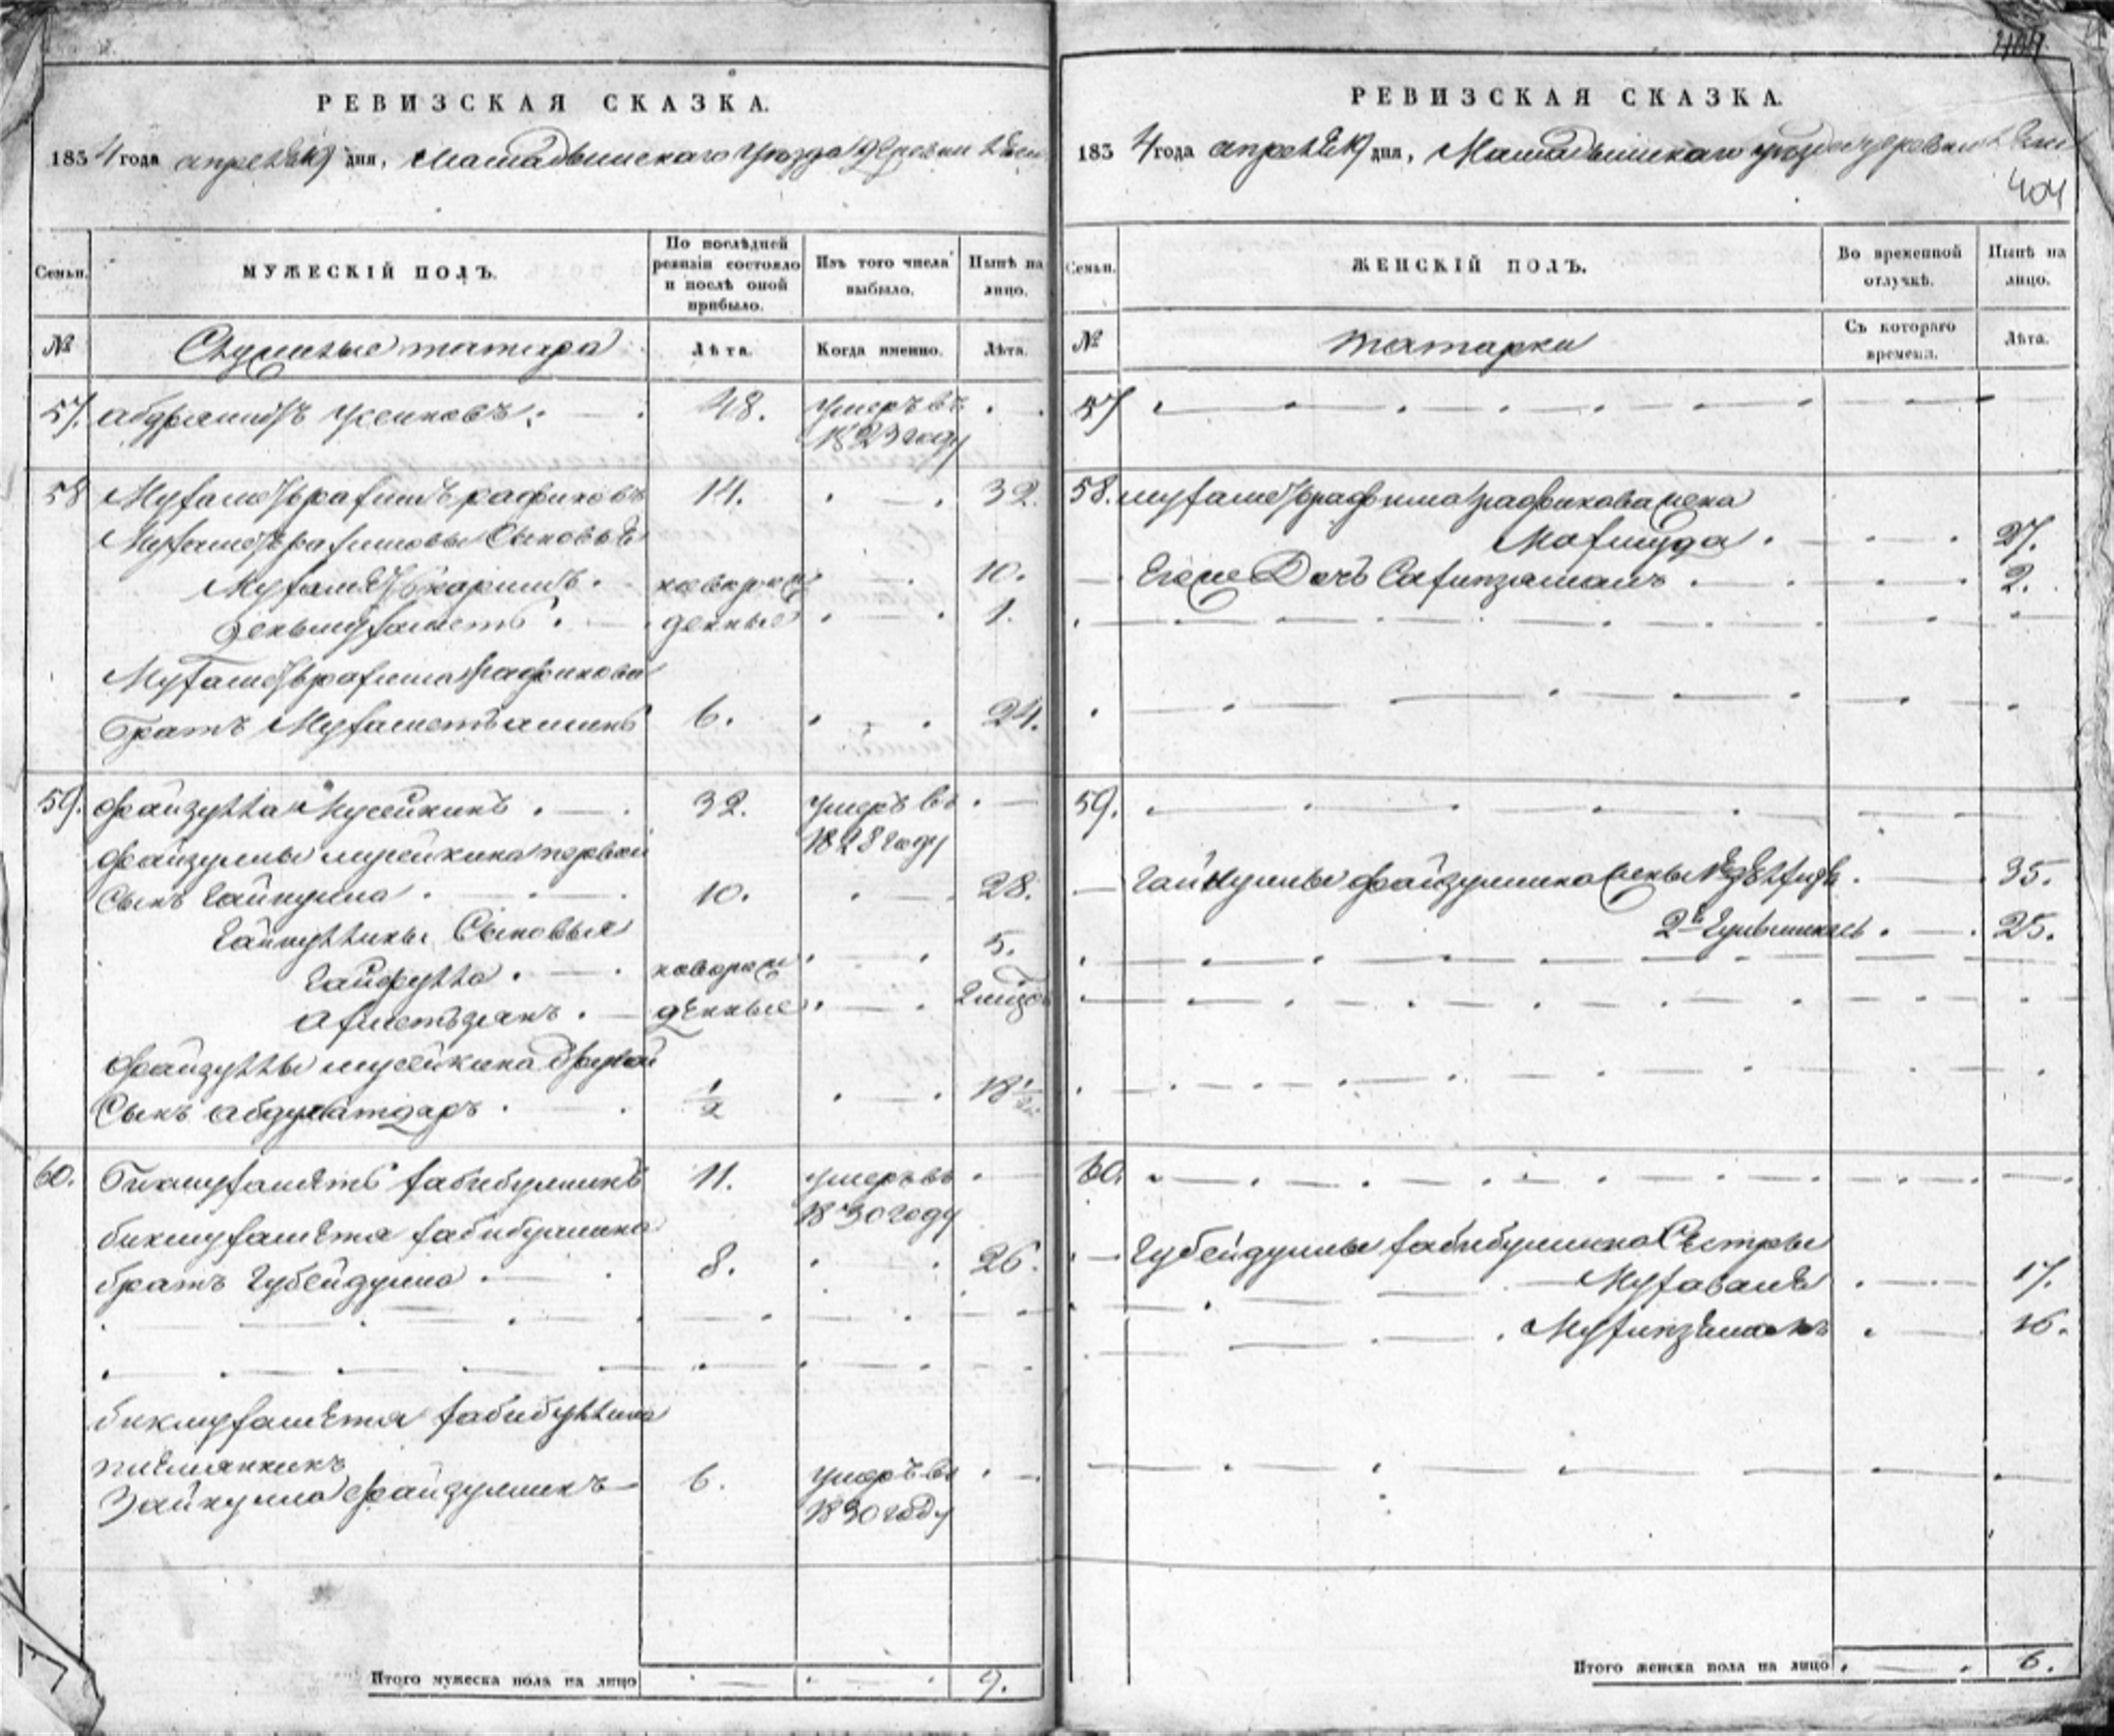 РЕВИЗСКАЯ СКАЗКА.
1834 года апреля 19 дня, Мамадышскаго уезда деревни
Семьи.
МУЖЕСКІЙ ПОЛЪ.
По послѣдней ревизіи состояло и послѣ оной прибыло.
Изъ того числа выбыло.
Нынѣ на лицо.
№
Служилые татара
Лѣта.
Когда именно.
Лѣта.
57. Абдрашитъ Усеиновъ. 48. умеръ въ
1823 году
58 Мухаметърахимъ рафиковъ 14. 32.
Мухаметърахимовы Сыновья
Мухаметькаримъ. новорож 10.
денные 1.
Мухаметърахима рафикова
братъ Мухаметьаминъ 6. 24.
59. Файзулла Мусейкинъ. 32. умеръ въ
1828 году
Файзуллы мусейкина первой
Сынъ Гайнулла 10. 28.
Гайнуллины Сыновья
Гайфулла. новорож 5.
Ахметьзянъ. денные
Файзуллы мусейкина другой
Сынъ Абдулсатдаръ. 1/2 18 1/2
60. Бикмухаметь хабибуллинъ 11. умеръ въ
1830 году
бикмухаметя хабибуллина
братъ Губейдулла. 8. 26.
бикмухаметя хабибуллина
племянникъ
Зайнулла Файзуллинъ 6. умеръ въ
1830 году
Итого мужеска пола на лицо 9.
РЕВИЗСКАЯ СКАЗКА.
1834 года апреля 19 дня, Мамадышскаго уезда деревни
404
Семьи.
ЖЕНСКІЙ ПОЛЪ.
Во временной отлучкѣ.
Нынѣ на лицо.
№
татарки
Съ котораго времени.
Лѣта.
57
58. мухаметърахима рафикова жена
Махмуда. 27.
Егоже Дочь Сахипзямалъ. 2.
59.
Гайнуллы файзуллина жены 35.
2я 25.
60.
Губейдуллы хабибуллина Сестры
17.
16.
Итого женска пола на лицо 6.